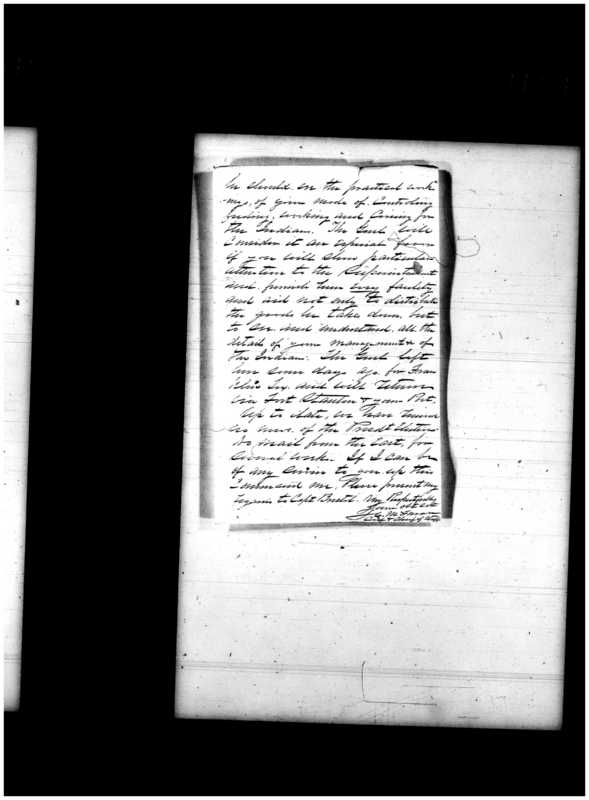 he should see the practical work
-ings, of your mode of Controling
feeding, working and Caring for
the Indians. The Genl. will
Consider it an especial favor
if you will show particular
attention to the Superintendent
and furnish him every facility
and aid not only to distribute
the goods he takes down, but
to see and understand, all the
details of your management & of
the Indians. The Genl left
here some days ago for Fran
klin Tex. and will return
via Fort Stanton & your Post.
Up to date, we have received
no news of the Presdt Election
No mail from the East, for
several weeks. If I can be
of any service to you up here
Command me. Please present my
regards to Capt Bristol. Very Respectfully
Your obt Svt